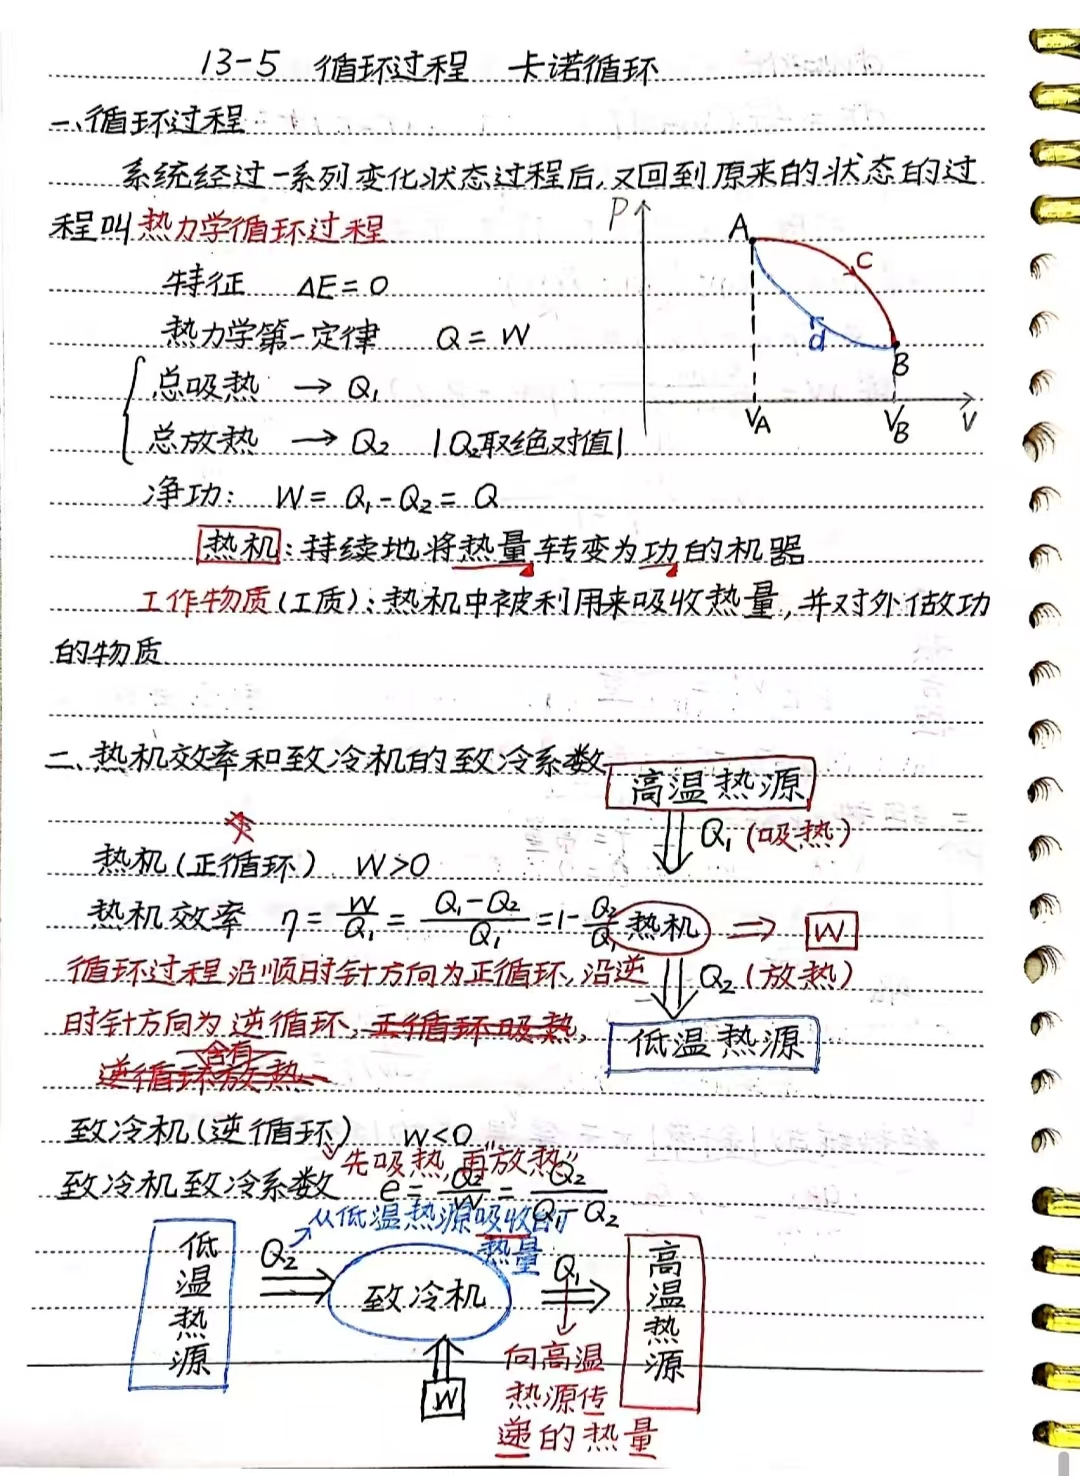 13-5 循环过程 卡诺循环
一、循环过程
系统经过一系列变化状态过程后,又回到原来的状态的过
程叫热力学循环过程
P
A
c
d
B
VA
VB
V
特征 ΔE=0
热力学第一定律 Q=W
总吸热 → Q₁
总放热 → Q₂ |Q₂取绝对值|
净功: W=Q₁-Q₂=Q
热机:持续地将热量转变为功的机器
工作物质(工质):热机中被利用来吸收热量,并对外做功
的物质
二、热机效率和致冷机的致冷系数
热机(正循环) W>0
热机效率 η=W/Q₁=(Q₁-Q₂)/Q₁=1-Q₂/Q₁
高温热源
Q₁(吸热)
热机 ⇒ W
Q₂(放热)
低温热源
循环过程沿顺时针方向为正循环,沿逆
时针方向为逆循环,正循环吸热,
含有
逆循环放热
致冷机(逆循环) W<0
先吸热,再“放热”
致冷机致冷系数 e=Q₂/W=Q₂/(Q₁-Q₂)
从低温热源吸收的
热量
低温热源
Q₂
致冷机
Q₁
高温热源
W
向高温
热源传
递的热量